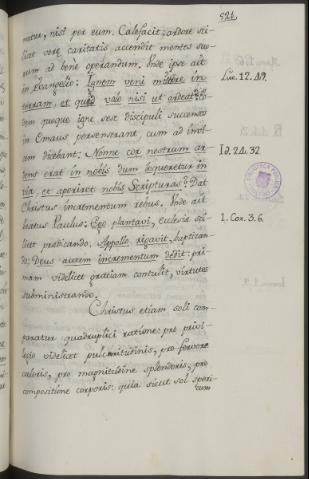 521.
natur, nisi per eum. Calefacit; ardore sci-
licet veræ caritatis accendit mentes suo-
rum ad bene operandum. Unde ipse ait
in Evangelio: Ignem veni mittere in
terram, et quid volo nisi ut ardeat? 
dem quoque igne, sese discipuli succensos
in Emaus persenserant, cum ad invi-
cem dicebant: Nonne cor nostrum ar-
dens erat in nobis dum loqueretur in
via, et aperiret nobis Scripturas? Dat
Christus incrementum rebus. Unde ait
beatus Paulus: Ego plantavi, ecclesia sci-
licet prædicando, Apollo rigavit, baptizan-
do; Deus autem incrementum dedit: pri-
mam videlicet gratiam contulit, virtutes
subministrando.
Christus etiam soli com-
paratur quadruplici ratione: pro privi-
legio videlicet pulchritudinis, pro fervore
caloris, pro magnitudine splendoris, pro
compositione corporis: quia sicut sol speri-
cum
Luc. 12. 49.
Id. 24. 32
1. Cor. 3. 6.